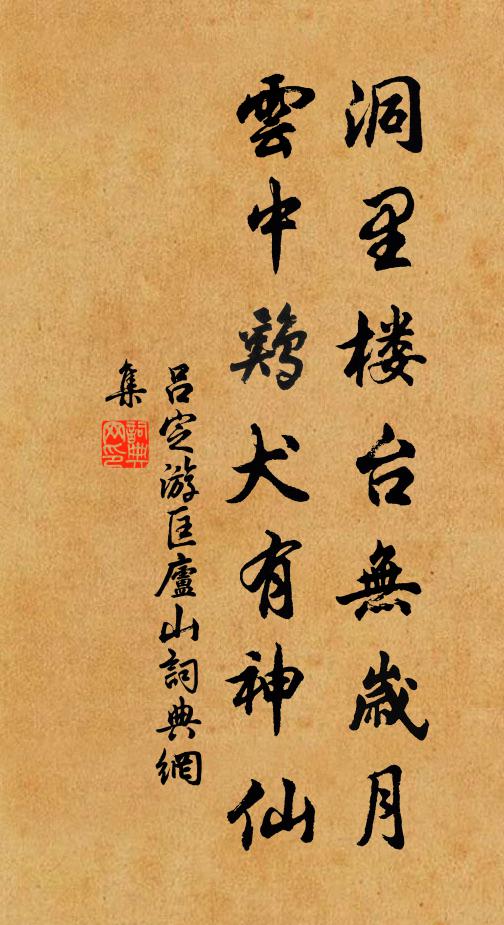 洞里楼台無歲月
雲中鷄犬有神仙
吕定游匡廬山詞典網
集
詞典
网印